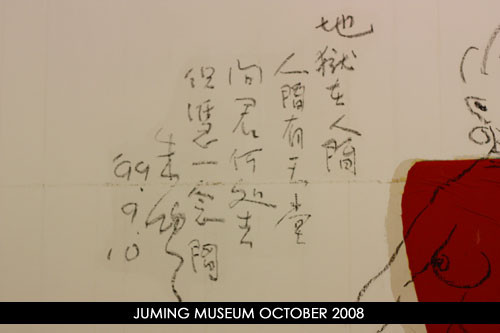 地獄在人間
人間有天堂
問君何处去
但憑一念間
朱銘
'99.9.10
JUMING MUSEUM OCTOBER 2008